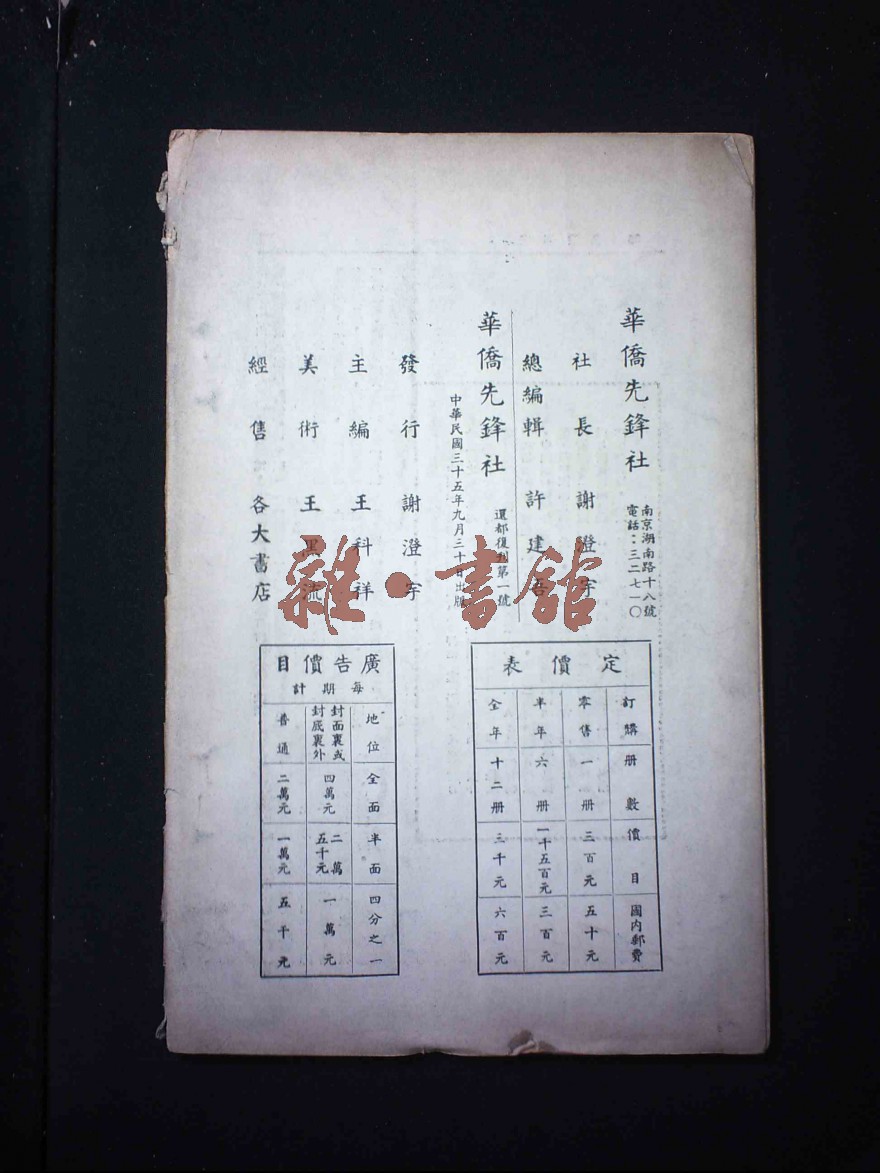 華僑先鋒社
南京湖南路十八號
電話：三二七一〇
社長 謝澄宇
總編輯 許建吾
華僑先鋒社
還都復刊第一號
中華民國三十五年九月三十日出版
發行 謝澄宇
主編 王科祥
美術 王黑流
經售 各大書店
定價表
訂購 册數 價目 國內郵費
零售 一册 三百元 五十元
半年 六册 一千五百元 三百元
全年 十二册 三千元 六百元
廣告價目
每期計
地位 全面 半面 四分之一
封面裏或封底裏外 四萬元 二萬五千元 一萬元
普通 二萬元 一萬元 五千元
雜·書館